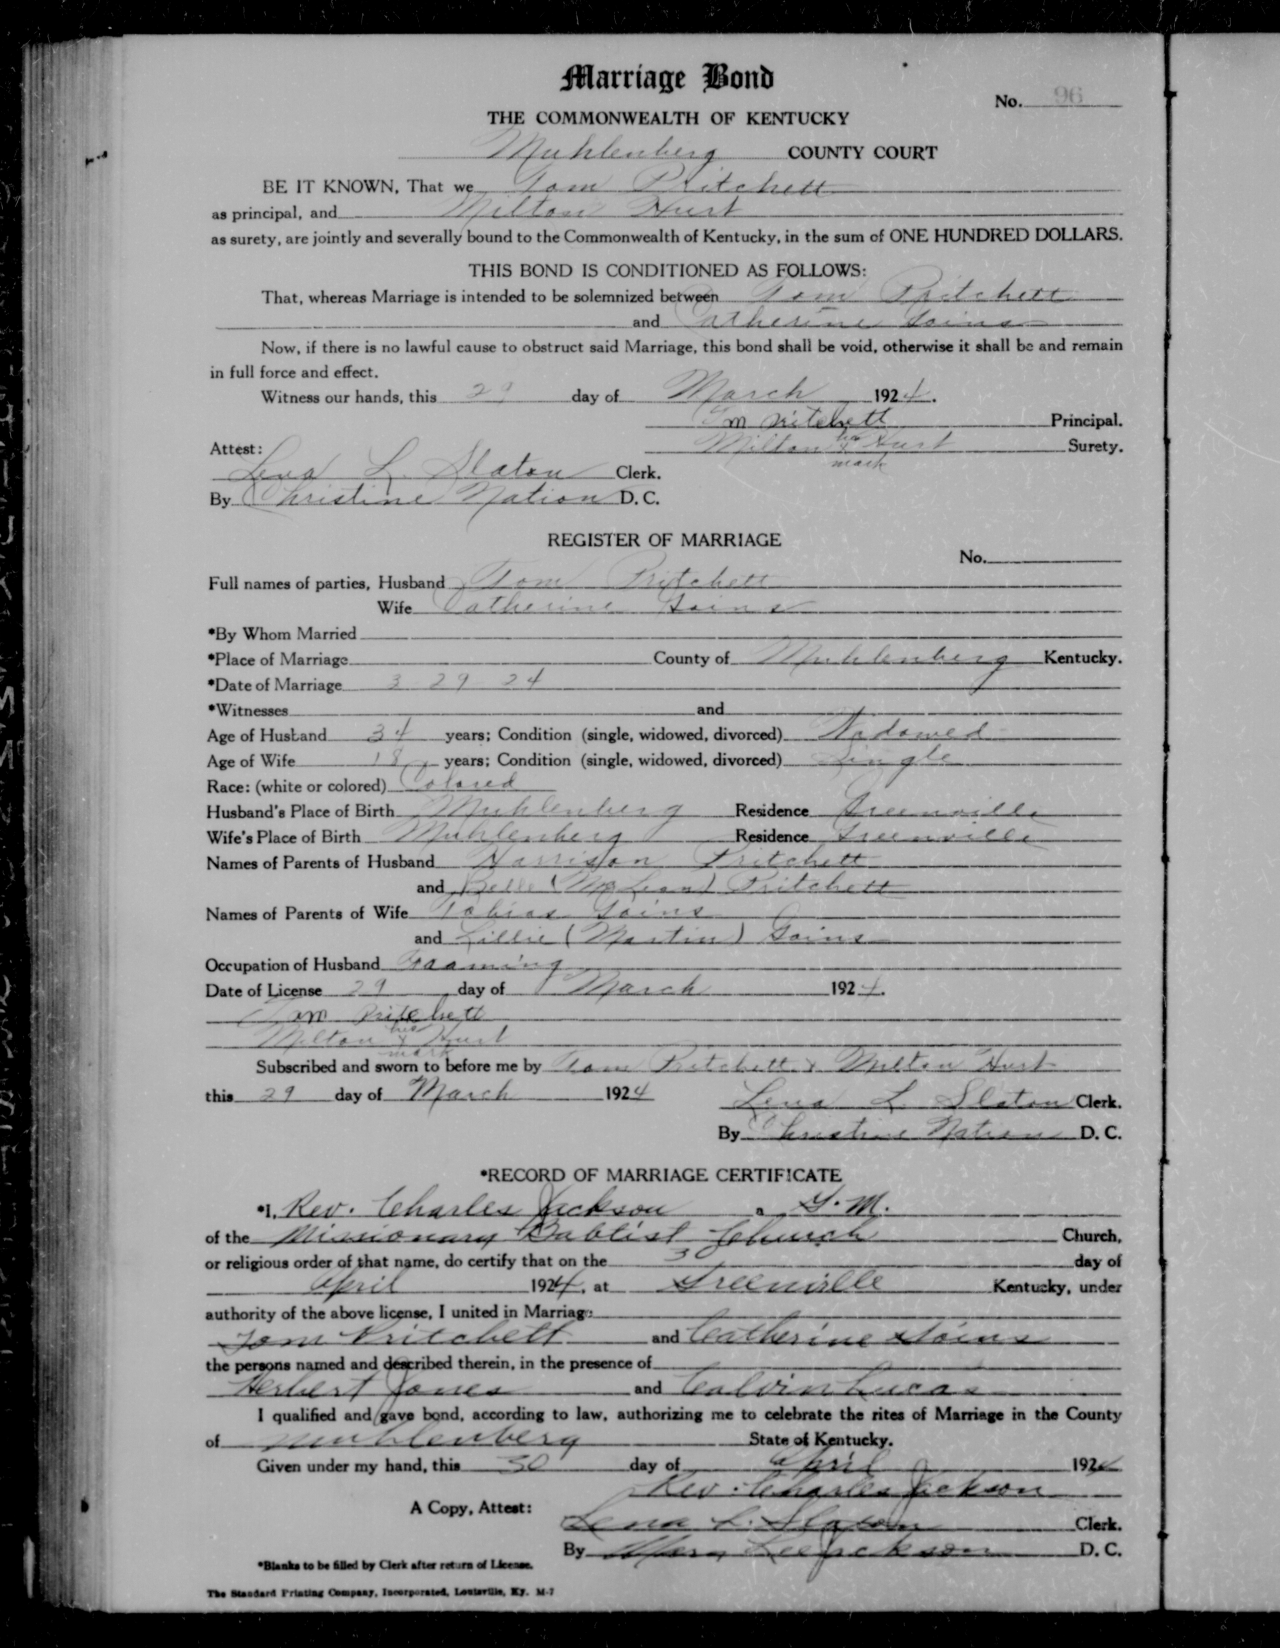 Marriage Bond
No. 96
THE COMMONWEALTH OF KENTUCKY
Muhlenberg COUNTY COURT
BE IT KNOWN, That we Tom Pritchett
as principal, and Milton Hurt
as surety, are jointly and severally bound to the Commonwealth of Kentucky, in the sum of ONE HUNDRED DOLLARS.
THIS BOND IS CONDITIONED AS FOLLOWS:
That, whereas Marriage is intended to be solemnized between Tom Pritchett
and Catherine Goins
Now, if there is no lawful cause to obstruct said Marriage, this bond shall be void, otherwise it shall be and remain
in full force and effect.
Witness our hands, this 29 day of March 1924.
Tom Pritchett Principal.
Attest: Milton his x mark Hurt Surety.
Lena L. Slaton Clerk.
By Christine Nation D. C.
REGISTER OF MARRIAGE
No.
Full names of parties, Husband Tom Pritchett
Wife Catherine Goins
*By Whom Married
*Place of Marriage County of Muhlenberg Kentucky.
*Date of Marriage 3 29 24
*Witnesses and
Age of Husband 34 years; Condition (single, widowed, divorced) Widowed
Age of Wife 18 years; Condition (single, widowed, divorced) Single
Race: (white or colored) Colored
Husband's Place of Birth Muhlenberg Residence Greenville
Wife's Place of Birth Muhlenberg Residence Greenville
Names of Parents of Husband Harrison Pritchett
and Belle (McLean) Pritchett
Names of Parents of Wife Tobias Goins
and Lillie (Martin) Goins
Occupation of Husband Farming
Date of License 29 day of March 1924.
Tom Pritchett
Milton his x mark Hurt
Subscribed and sworn to before me by Tom Pritchett & Milton Hurt
this 29 day of March 1924
Lena L Slaton Clerk.
By Christine Nation D. C.
*RECORD OF MARRIAGE CERTIFICATE
*I, Rev. Charles Jackson a G. M.
of the Missionary Babtist Church Church,
or religious order of that name, do certify that on the 3 day of
April 1924, at Greenville Kentucky, under
authority of the above license, I united in Marriage
Tom Pritchett and Catherine Goins
the persons named and described therein, in the presence of
Herbert Jones and Calvin Lucas
I qualified and gave bond, according to law, authorizing me to celebrate the rites of Marriage in the County
of Muhlenberg State of Kentucky.
Given under my hand, this 30 day of April 1924
Rev. Charles Jackson
A Copy, Attest:
Lena L. Slaton Clerk.
By Mary Lee Jackson D. C.
*Blanks to be filled by Clerk after return of License.
The Standard Printing Company, Incorporated, Louisville, Ky. M-7